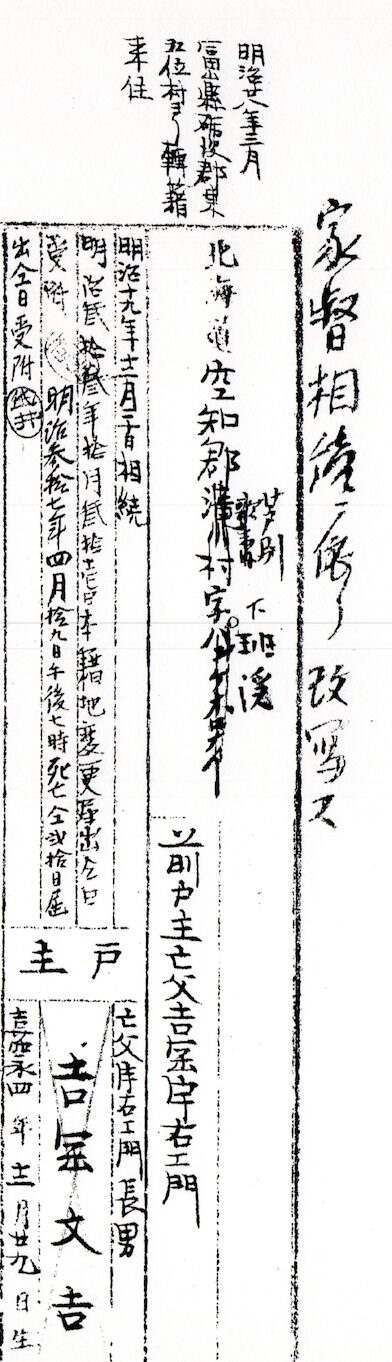 家督相続ニ依リ改写ス
明治廿八年三月
富山縣礪波郡東
五位村ヨリ轉籍
来住
北海道空知郡瀧川村字
芦別
下班渓
前戸主亡父吉宗宇右エ門
明治十九年十二月二百相続
明治弐拾叁年拾月弐拾日本籍地変更届出仝日
受附
明治参拾七年四月拾九日午後七時死亡仝弐拾日届
出仝日受附
戸主
亡父宇右エ門長男
吉宗文吉
嘉永四年十二月廿九日生